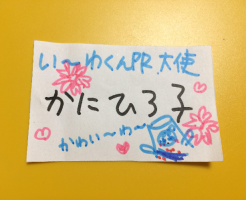 い〜わくんPR大使
かにひろ子
かわい〜わ〜